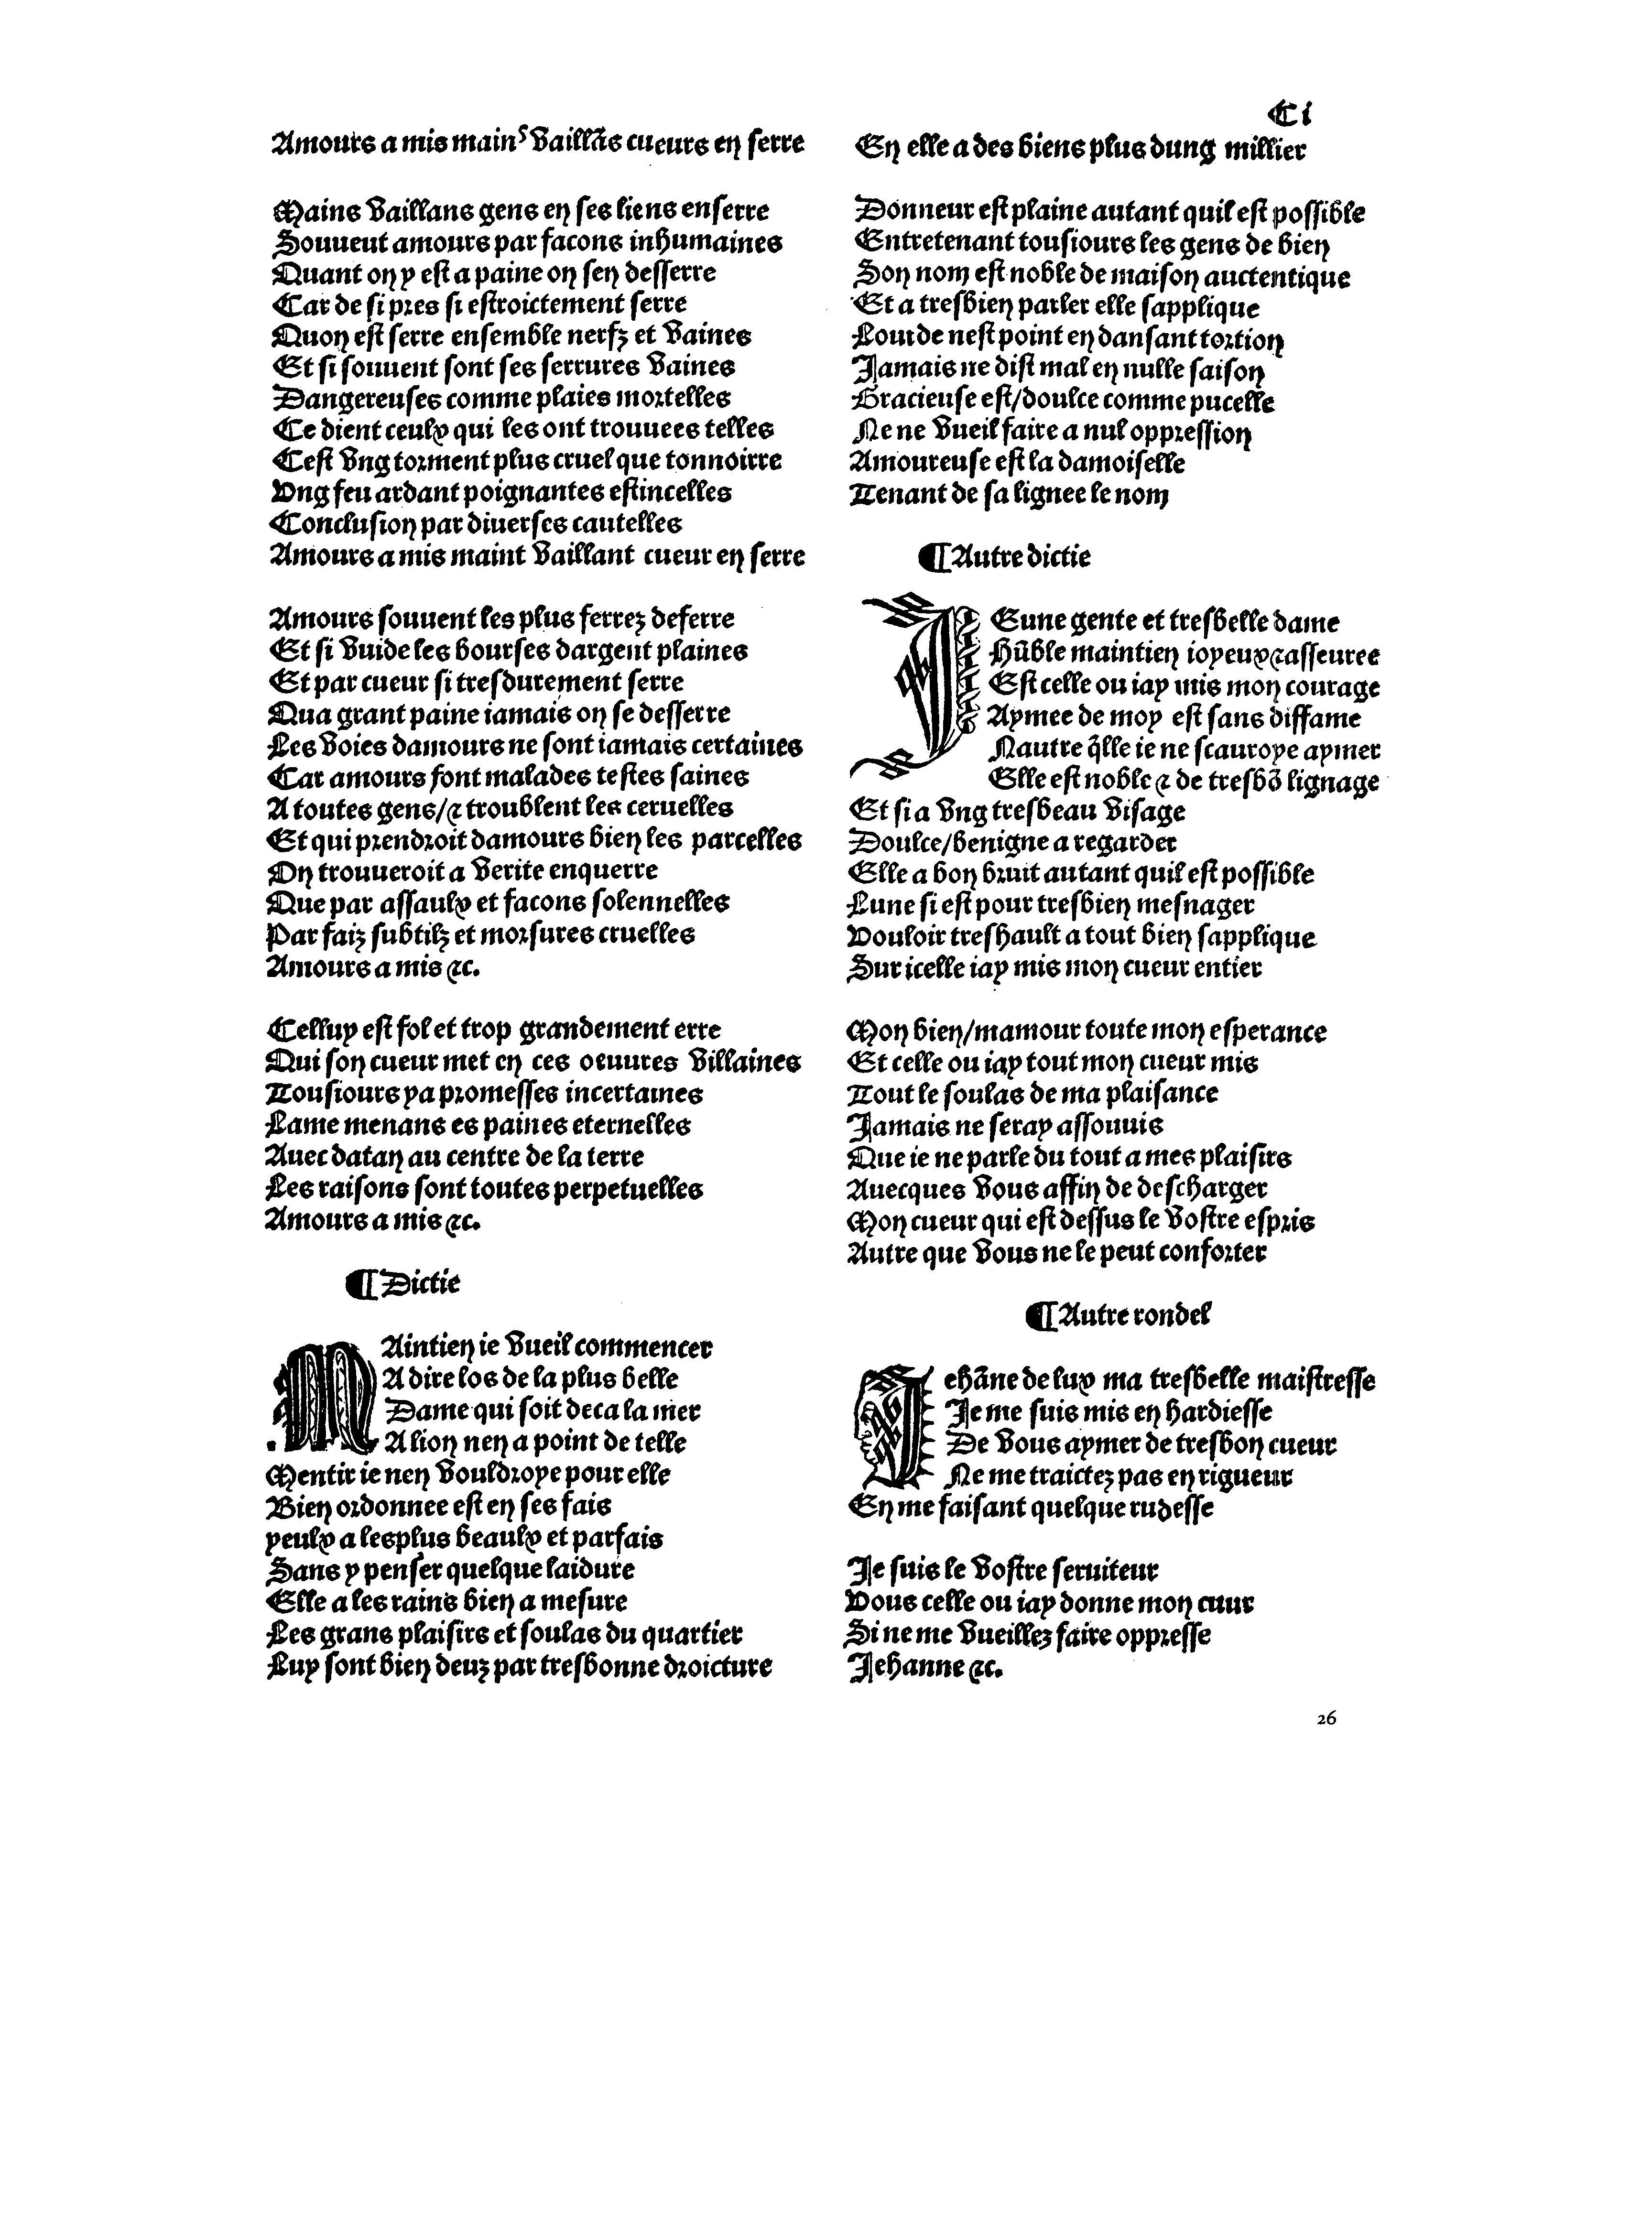 Ci
Amours a mis mainˢ vaillãs cueurs en serre
Mains vaillans gens en ses liens enserre
Souuent amours par facons inhumaines
Quant on y est a paine on sen desserre
Car de si pres si estroictement serre
Quon est serre ensemble nerfz et vaines
Et si souuent sont ses serrures vaines
Dangereuses comme plaies mortelles
Ce dient ceulx qui les ont trouuees telles
Cest vng torment plus cruel que tonnoirre
Vng feu ardant poignantes estincelles
Conclusion par diuerses cautelles
Amours a mis maint vaillant cueur en serre
Amours souuent les plus ferrez deferre
Et si vuide les bourses dargent plaines
Et par cueur si tresdurement serre
Qua grant paine iamais on se desserre
Les voies damours ne sont iamais certaines
Car amours font malades testes saines
A toutes gens/⁊ troublent les ceruelles
Et qui prendroit damours bien les parcelles
On trouueroit a verite enquerre
Que par assaulx et facons solennelles
Par faiz subtilz et morsures cruelles
Amours a mis ⁊c.
Celluy est fol et trop grandement erre
Qui son cueur met en ces oeuures villaines
Tousiours ya promesses incertaines
Lame menans es paines eternelles
Auec datan au centre de la terre
Les raisons sont toutes perpetuelles
Amours a mis ⁊c.
¶ Dictie
MAintien ie vueil commencer
A dire los de la plus belle
Dame qui soit deca la mer
A lion nen a point de telle
Mentir ie nen vouldroye pour elle
Bien ordonnee est en ses fais
yeulx a lesplus beaulx et parfais
Sans y penser quelque laidure
Elle a les rains bien a mesure
Les grans plaisirs et soulas du quartier
Luy sont bien deuz par tresbonne droicture
En elle a des biens plus dung millier
Donneur est plaine autant quil est possible
Entretenant tousiours les gens de bien
Son nom est noble de maison auctentique
Et a tresbien parler elle sapplique
Lourde nest point en dansant tortion
Jamais ne dist mal en nulle saison
Gracieuse est/doulce comme pucelle
Ne ne vueil faire a nul oppression
Amoureuse est la damoiselle
Tenant de sa lignee le nom
¶ Autre dictie
JEune gente et tresbelle dame
Hũble maintien ioyeux⁊asseuree
Est celle ou iay mis mon courage
Aymee de moy est sans diffame
Nautre q̃lle ie ne scauroye aymer
Elle est noble ⁊ de tresbõ lignage
Et si a vng tresbeau visage
Doulce/benigne a regarder
Elle a bon bruit autant quil est possible
Lune si est pour tresbien mesnager
Vouloir treshault a tout bien sapplique
Sur icelle iay mis mon cueur entier
Mon bien/mamour toute mon esperance
Et celle ou iay tout mon cueur mis
Tout le soulas de ma plaisance
Jamais ne seray assouuis
Que ie ne parle du tout a mes plaisirs
Auecques vous affin de descharger
Mon cueur qui est dessus le vostre espris
Autre que vous ne le peut conforter
¶ Autre rondel
Jehãne de lux ma tresbelle maistresse
Je me suis mis en hardiesse
De vous aymer de tresbon cueur
Ne me traictez pas en rigueur
En me faisant quelque rudesse
Je suis le vostre seruiteur
Vous celle ou iay donne mon cuur
Si ne me vueillez faire oppresse
Jehanne ⁊c.
26